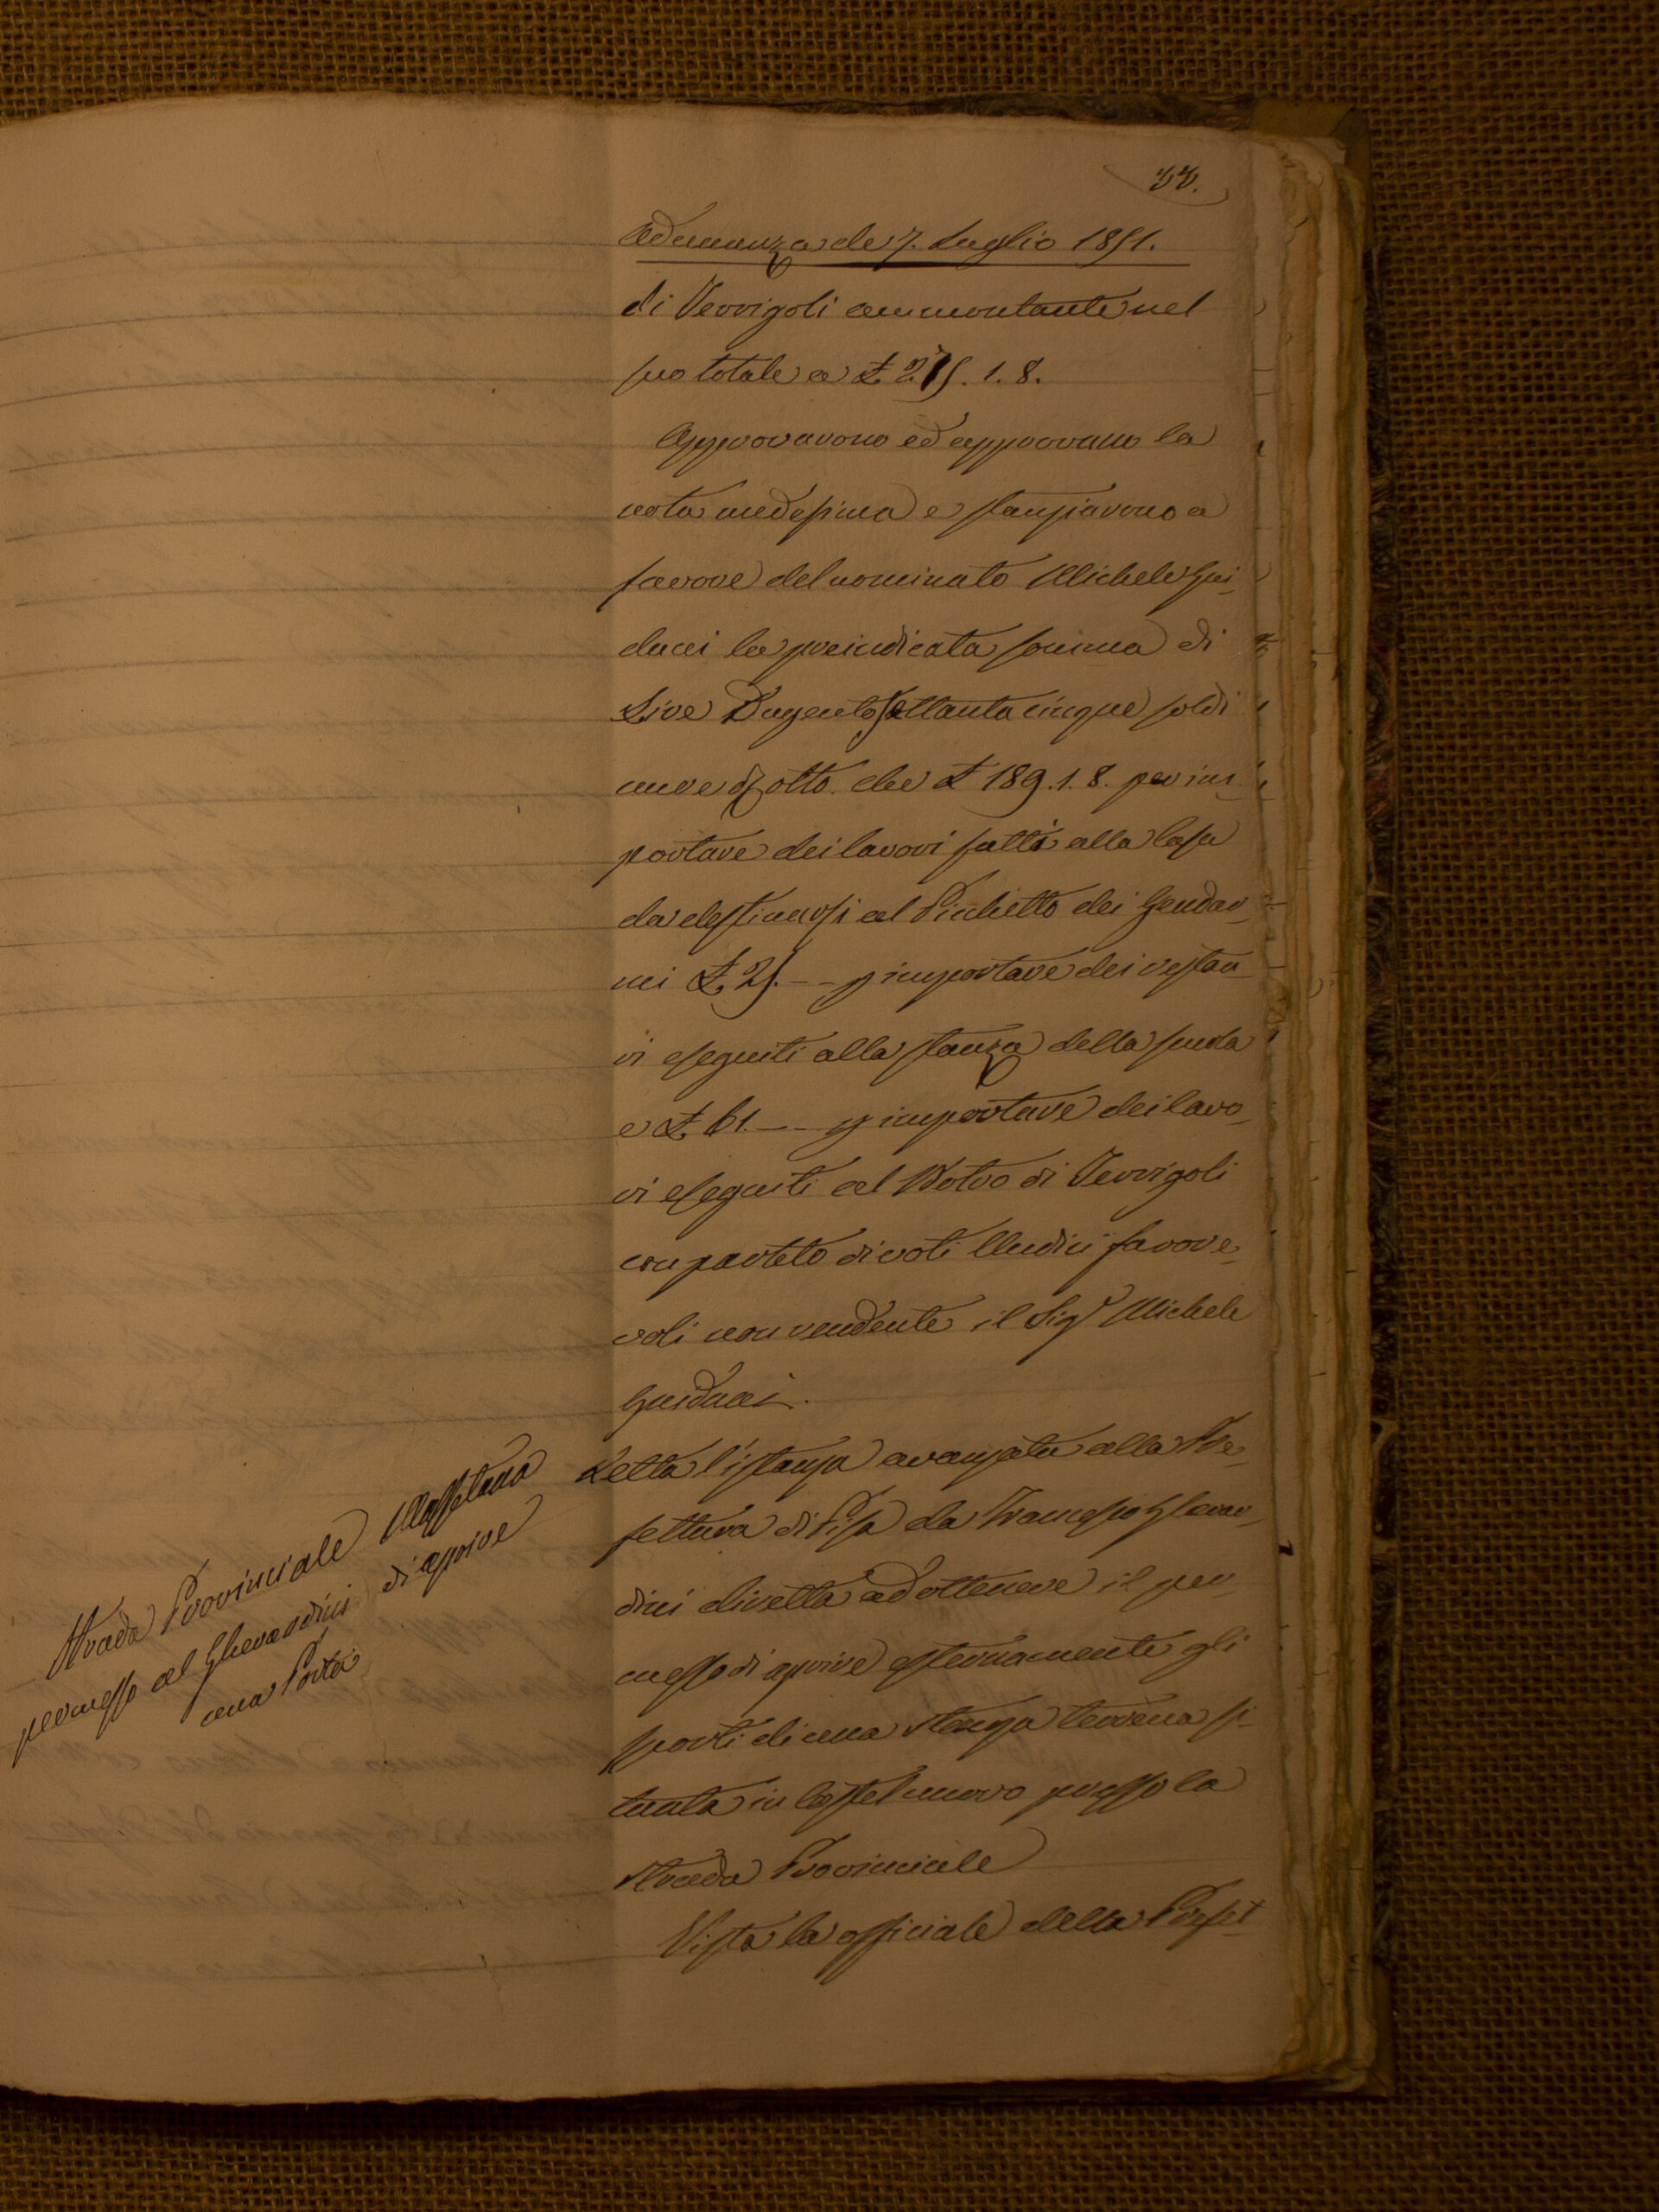 33.
Adunanza de 7. Luglio 1851.
di Terrigoli ammontante nel
suo totale a £ 275. 1. 8.
Approvarono ed approvano la
nota medesima e stanziarono a
favore del nominato Michele Gui_
ducci la preindicata somma di
Lire Dugento Settanta cinque soldi
uno e 8 otto. che £ 189. 1. 8. per im_
portare dei lavori fatti alla Casa
da destinarsi al Picchetto dei Gendar_
mi £ 25. _ _ p importare dei restau_
ri eseguiti alla stanza della scuola
e £ 61. _ _ p importare dei lavo_
ri eseguiti al Botro di Terrigoli
con partito di voti Undici favore_
voli non rendente il Sig.r Michele
Guiducci.
Strada Provinciale Massetana
permesso al Gherardini di aprire
una Porta
Letta l'istanza avanzata alla Pre_
fettura di Pisa da Francesco Gherar_
dini diretta ad ottenere il per_
messo di aprire esternamente gli
sporti di una stanza terrena si_
tuata in Castelnuovo presso la
strada Provinciale
Vista la officiale della Prefet_